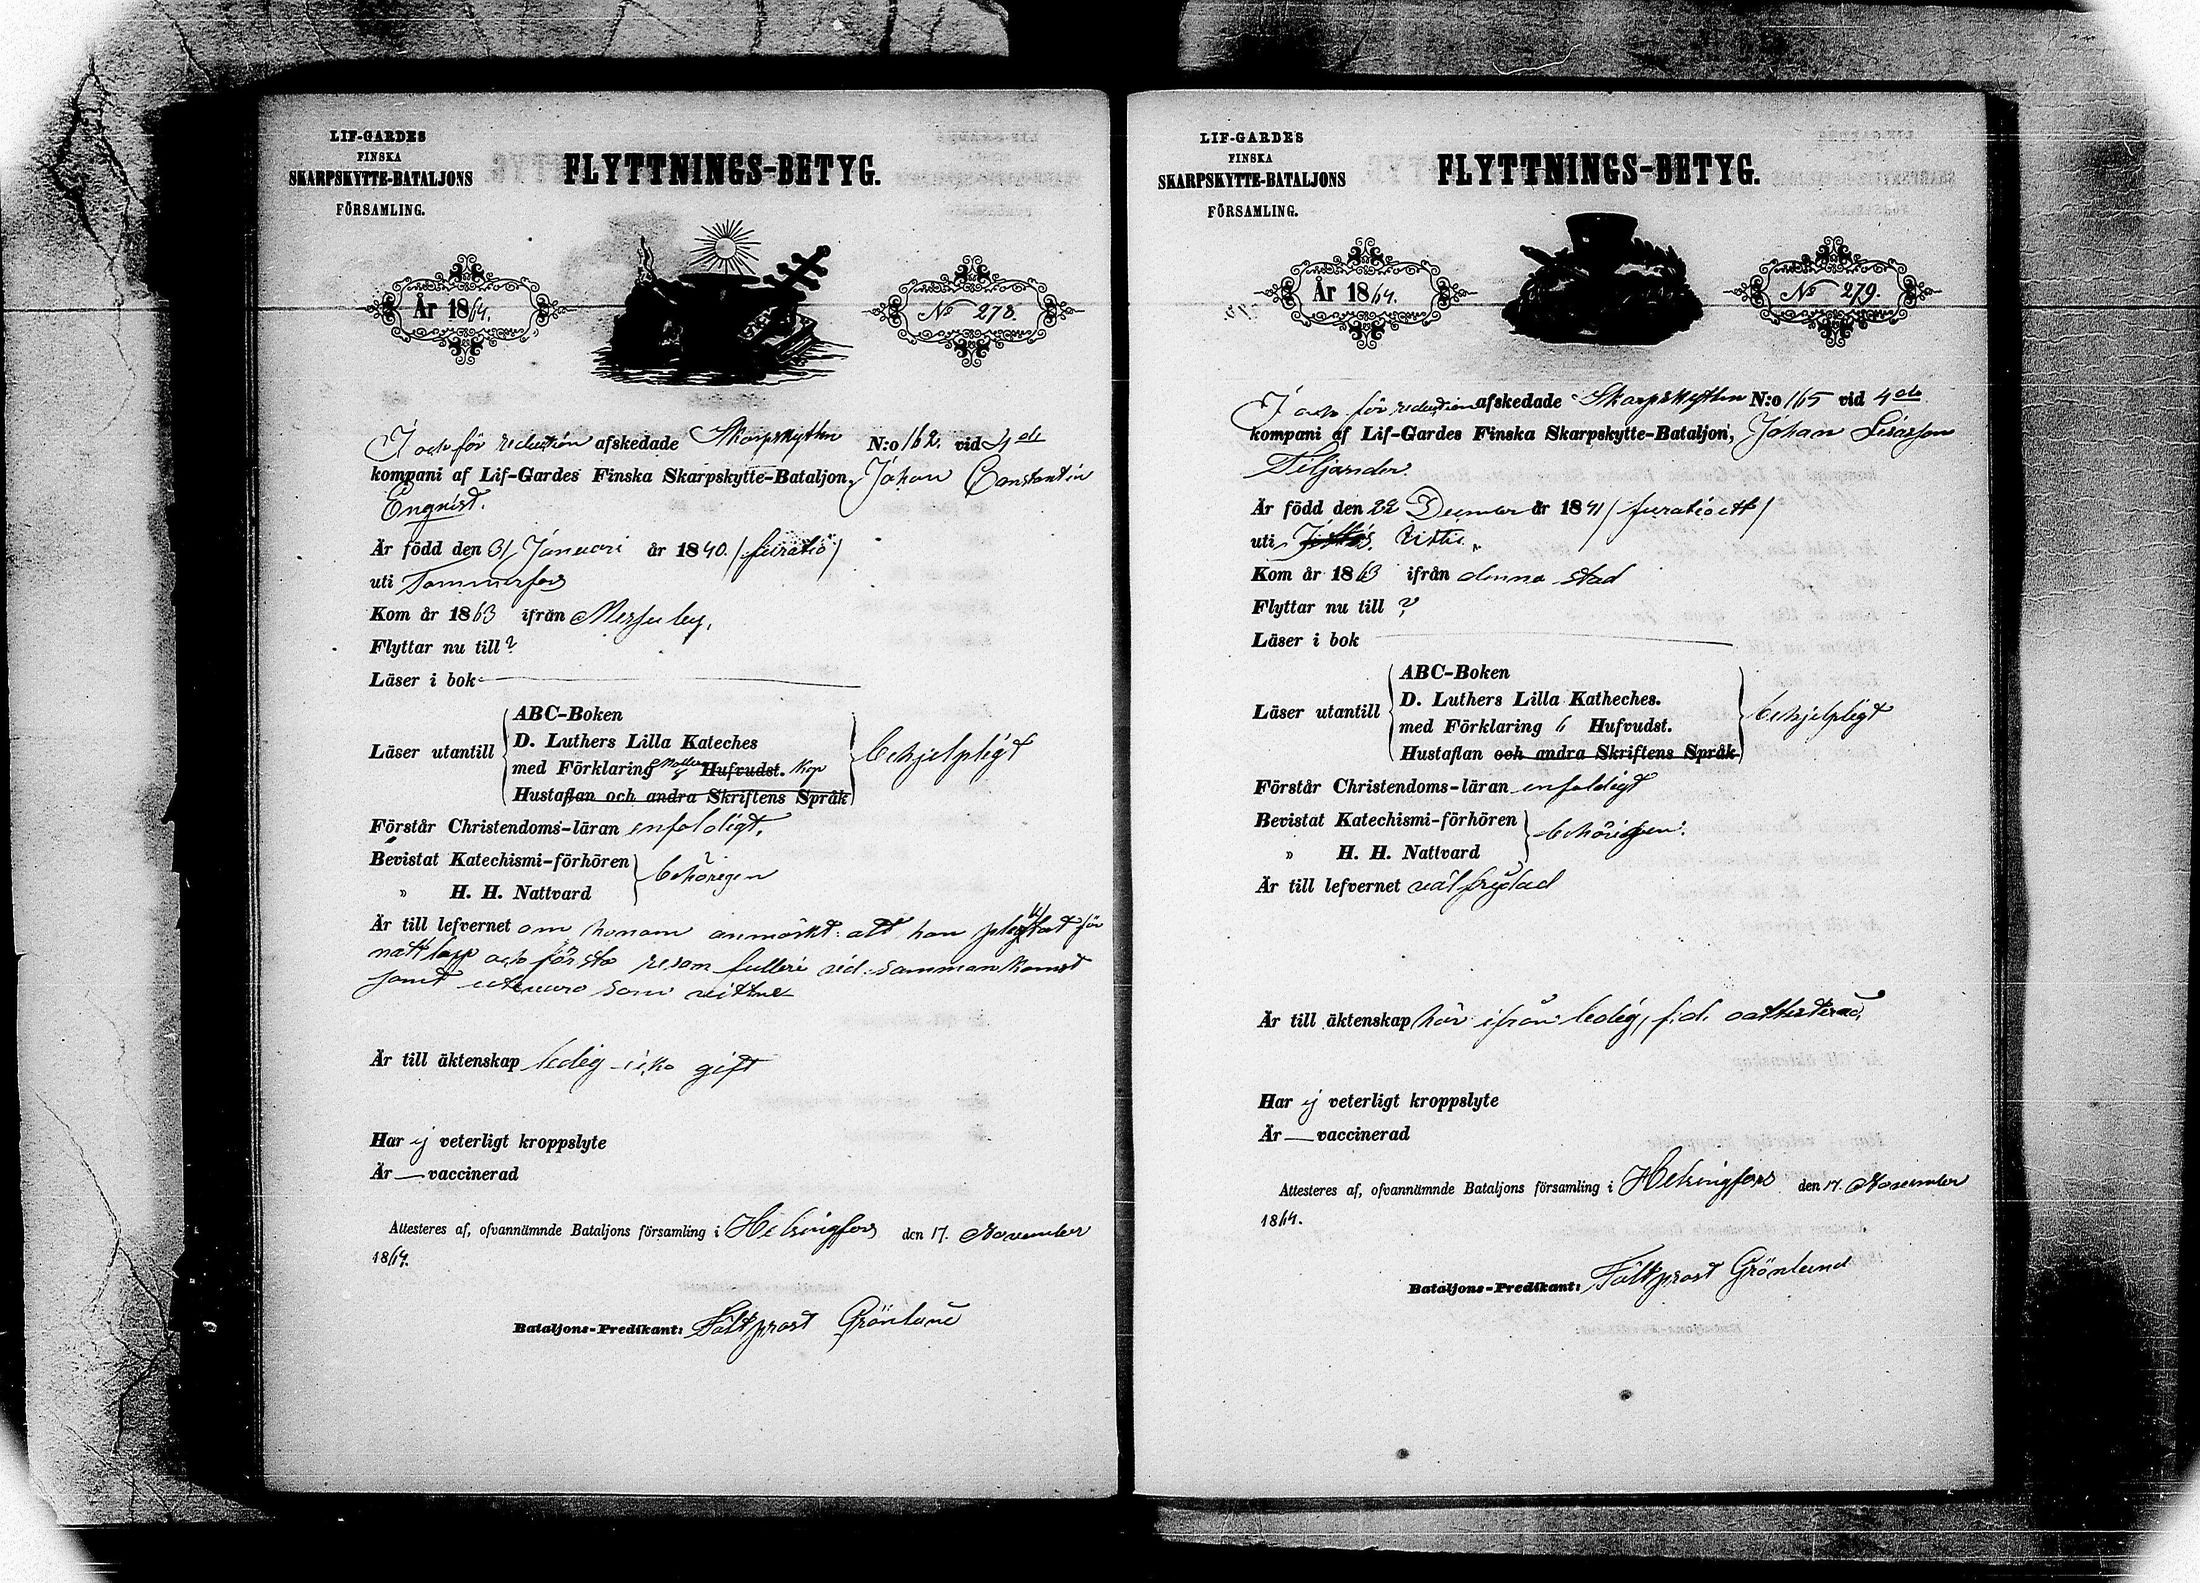 LIF-GARDES
FINSKA
SKARPSKYTTE-BATALJONS
FÖRSAMLING.
FLYTTNINGS-BETYG.
År 1864.
No 278.
I och för reduction afskedade Skarpskytten N:o 162. vid 4de
kompani af Lif-Gardes Finska Skarpskytte-Bataljon, Johan Constantin
Enqvist.
Är född den 31 Januari år 1840. / furatio /
uti Tammerfors
Kom år 1863 ifrån Messuby.
Flyttar nu till ?
Läser i bok
ABC-Boken
D. Luthers Lilla Kateches
Läser utantill behjelpligt
med Förklaring Hufvudst.
Hustaflan och andra Skriftens Språk
Förstår Christendoms-läran enfaldigt.
Bevistat Katechismi-förhören
behörigen
" H. H. Nattvard
Är till lefvernet om honom anmärkt: att han pligtat för
nattlopp och första resan fylleri vid sammankomst
samt utevaro som vittne
Är till äktenskap ledig icke gift
Har ej veterligt kroppslyte
Är — vaccinerad
Attesteres af, ofvannämnde Bataljons församling i Helsingfors den 17. November
1864.
Bataljons-Predikant: Fältprost Grönlund
LIF-GARDES
FINSKA
SKARPSKYTTE-BATALJONS
FÖRSAMLING.
FLYTTNINGS-BETYG.
År 1864.
No 279.
I och för reduction afskedade Skarpskytten N:o 165 vid 4de
kompani af Lif-Gardes Finska Skarpskytte-Bataljon, Johan
Siljander.
Är född den 22 December år 1841 / furatioett /
uti Vittis
Kom år 1863 ifrån denna stad
Flyttar nu till ?
Läser i bok
ABC-Boken
D. Luthers Lilla Katheches.
Läser utantill behjelpligt
med Förklaring 6 Hufvudst.
Hustaflan och andra Skriftens Språk
Förstår Christendoms-läran enfaldigt
Bevistat Katechismi-förhören
behörigen.
" H. H. Nattvard
Är till lefvernet väl frejdad
Är till äktenskap här ifrån ledig, f.d. oattesterad.
Har ej veterligt kroppslyte
Är — vaccinerad
Attesteres af, ofvannämnde Bataljons församling i Helsingfors den 17. November
1864.
Bataljons-Predikant: Fältprost Grönlund